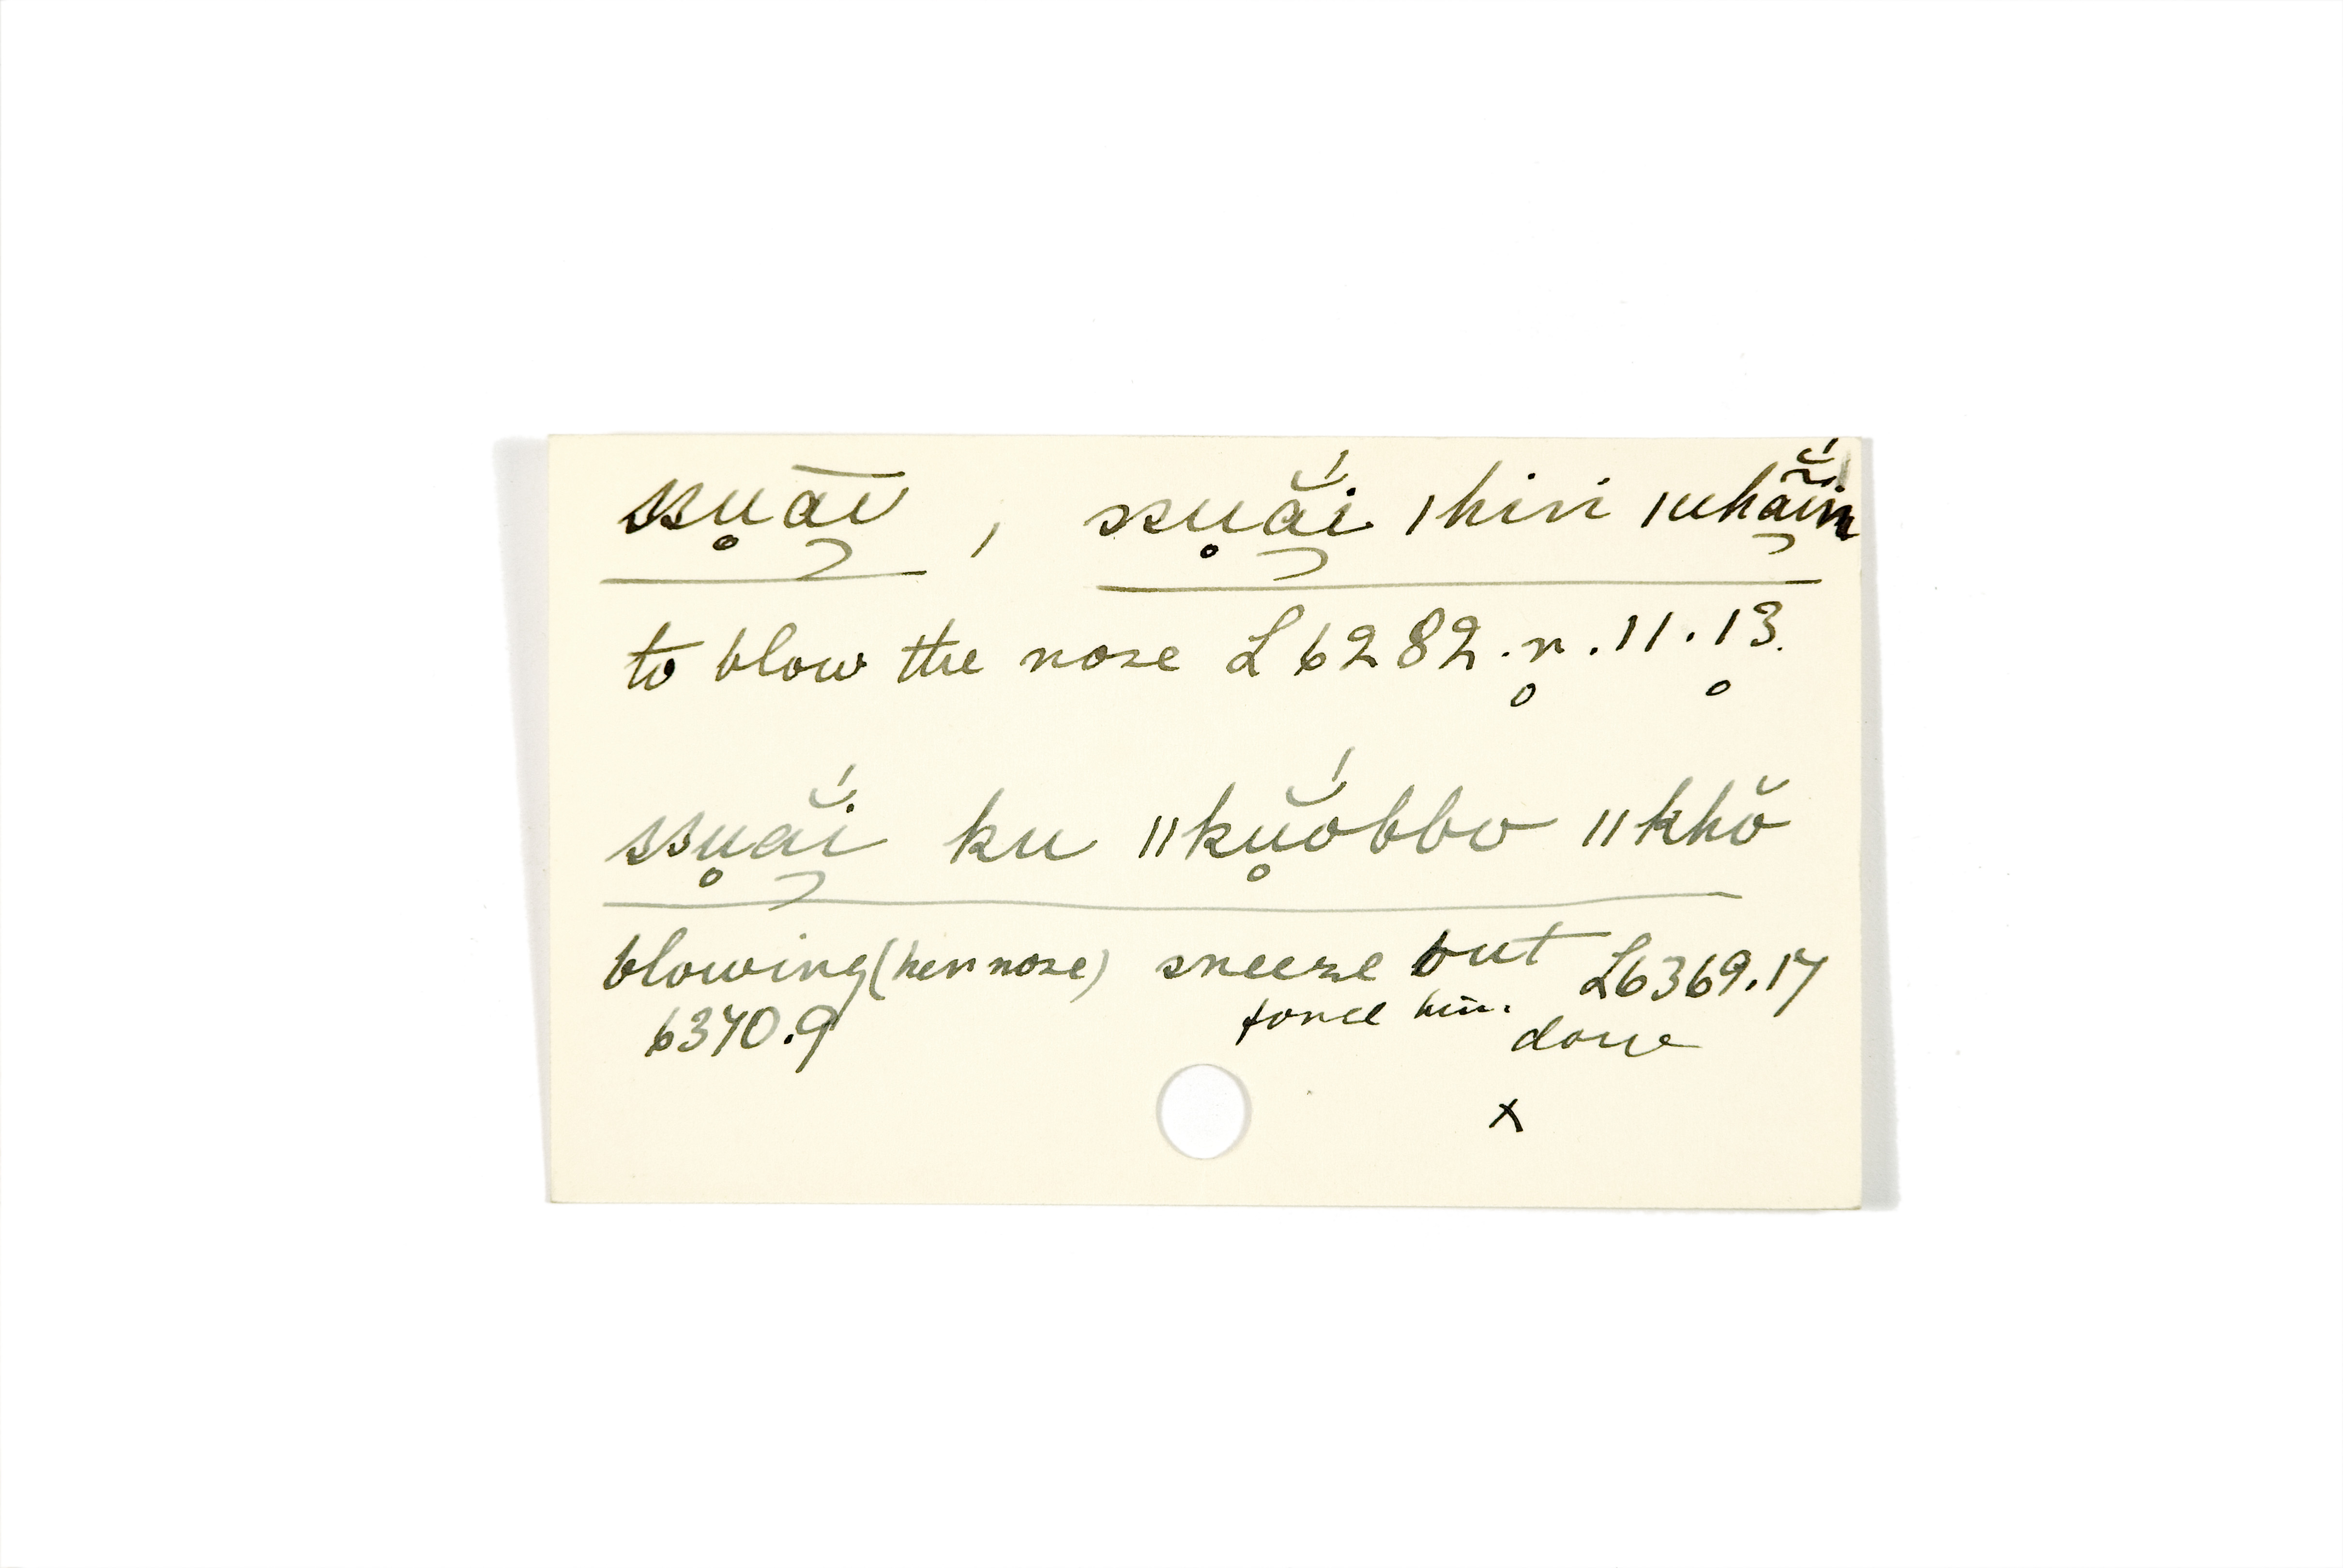 ssu̥āi, ssu̥ắi |hiri |uhã̆́in
to blow the nose L6282.n̥.11.13̥.
ssu̥ắi ku ||ku̥ŏ́bbo ||khŏ
blowing (her nose) sneeze out L6369.17
6370.9 force him. done
x